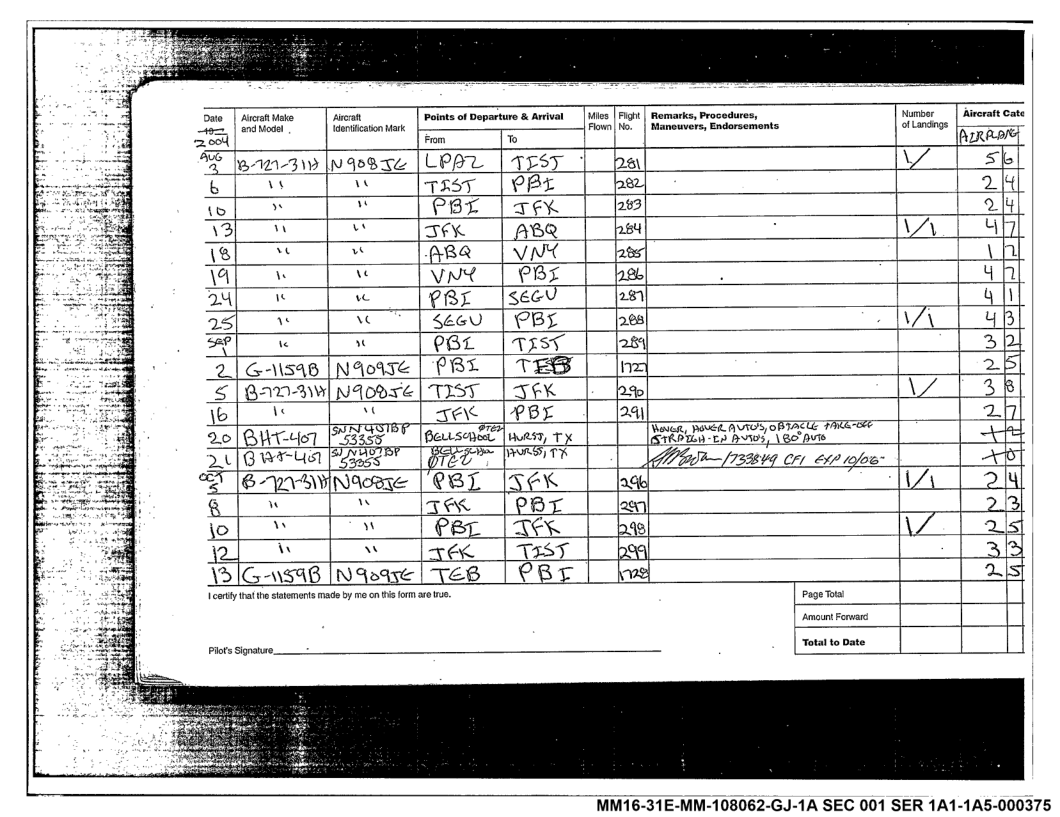 Date Aircraft Make and Model Aircraft Identification Mark Points of Departure & Arrival Miles Flown Flight No. Remarks, Procedures, Maneuvers, Endorsements Number of Landings Aircraft Cate
2004 From To AIRPLANE
AUG 3 B-727-31H N908JE LPAZ TIST 281 1/ 5 6
6 " " TIST PBI 282 2 4
10 " " PBI JFK 283 2 4
13 " " JFK ABQ 284 1/1 4 7
18 " " ABQ VNY 285 1 7
19 " " VNY PBI 286 4 7
24 " " PBI SEGU 287 4 1
25 " " SEGU PBI 288 1/1 4 3
SEP 1 " " PBI TIST 289 3 2
2 G-1159B N909JE PBI TEB 1727 2 5
5 B-727-31H N908JE TIST JFK 290 1/ 3 8
16 " " JFK PBI 291 2 7
20 BHT-407 SN N407BP 53355 BELLSCHOOL 0TE2 HURST, TX HOVER, HOVER AUTO'S, OBTACLE TAKE-OFF STRAIGH-IN AUTO'S, 180° AUTO
21 BHT-407 SN N407BP 53355 HURST, TX 1733849 CFI EXP 10/06
OCT 5 B-727-31H N908JE PBI JFK 296 1/1 2 4
8 " " JFK PBI 297 2 3
10 " " PBI JFK 298 1/ 2 5
12 " " JFK TIST 299 3 3
13 G-1159B N909JE TEB PBI 1728 2 5
I certify that the statements made by me on this form are true. Page Total
Amount Forward
Pilot's Signature Total to Date
MM16-31E-MM-108062-GJ-1A SEC 001 SER 1A1-1A5-000375